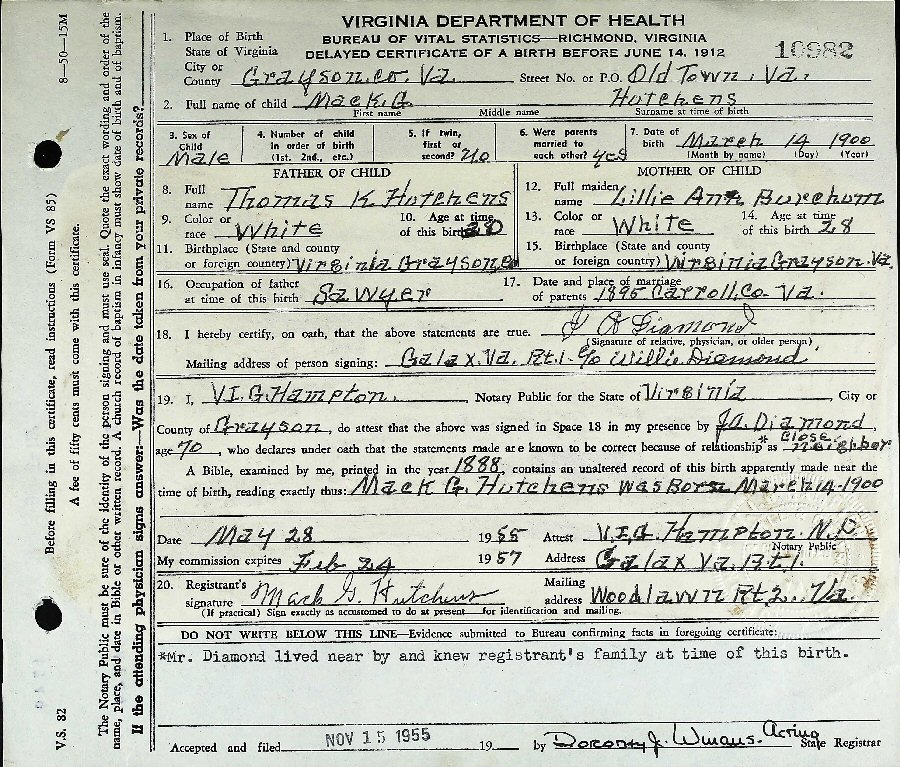 VIRGINIA DEPARTMENT OF HEALTH
BUREAU OF VITAL STATISTICS—RICHMOND, VIRGINIA
DELAYED CERTIFICATE OF A BIRTH BEFORE JUNE 14, 1912
10982
1. Place of Birth
State of Virginia
City or
County Grayson.co. Va. Street No. or P.O. Old Town, Va.
2. Full name of child Mack. G. Hutchens
First name Middle name Surname at time of birth
3. Sex of Child Male
4. Number of child in order of birth (1st. 2nd., etc.)
5. If twin, first or second? No
6. Were parents married to each other? yes
7. Date of birth March 14 1900
(Month by name) (Day) (Year)
FATHER OF CHILD
8. Full name Thomas K. Hutchens
9. Color or race White
10. Age at time of this birth 30
11. Birthplace (State and county or foreign country) Virginia Grayson
MOTHER OF CHILD
12. Full maiden name Lillie Ann Burchum
13. Color or race White
14. Age at time of this birth 28
15. Birthplace (State and county or foreign country) Virginia Grayson. Va.
16. Occupation of father at time of this birth Sawyer
17. Date and place of marriage of parents 1895 Carroll. Co. Va.
18. I hereby certify, on oath, that the above statements are true. Diamond
(Signature of relative, physician, or older person)
Mailing address of person signing: Galax. Va. Rt.1. c/o Willie Diamond
19. I, V.I.G. Hampton. , Notary Public for the State of Virginia , City or
County of Grayson , do attest that the above was signed in Space 18 in my presence by J.A. Diamond ,
age 70 , who declares under oath that the statements made are known to be correct because of relationship* as close neighbor
A Bible, examined by me, printed in the year 1888, contains an unaltered record of this birth apparently made near the
time of birth, reading exactly thus: Mack G. Hutchens was Born March 14-1900
Date May 28 1955 Attest V.I.G. Hampton. N.P.
Notary Public
My commission expires Feb 24 1957 Address Galax Va. Rt.1.
20. Registrant's signature Mack G. Hutchens Mailing address Woodlawn Rt.2.. Va.
(If practical) Sign exactly as accustomed to do at present for identification and mailing.
DO NOT WRITE BELOW THIS LINE—Evidence submitted to Bureau confirming facts in foregoing certificate:
*Mr. Diamond lived near by and knew registrant's family at time of this birth.
Accepted and filed NOV 15 1955 19 by Dorothy J. Winans. Acting
State Registrar
8—50—15M
V.S. 82
Before filling in this certificate, read instructions (Form VS 85)
A fee of fifty cents must come with this certificate.
The Notary Public must be sure of the identity of the person signing and must use seal. Quote the exact wording and order of the
name, place, and date in Bible or other written record. A church record of baptism in infancy must show date of birth and of baptism.
If the attending physician signs answer—Was the date taken from your private records?